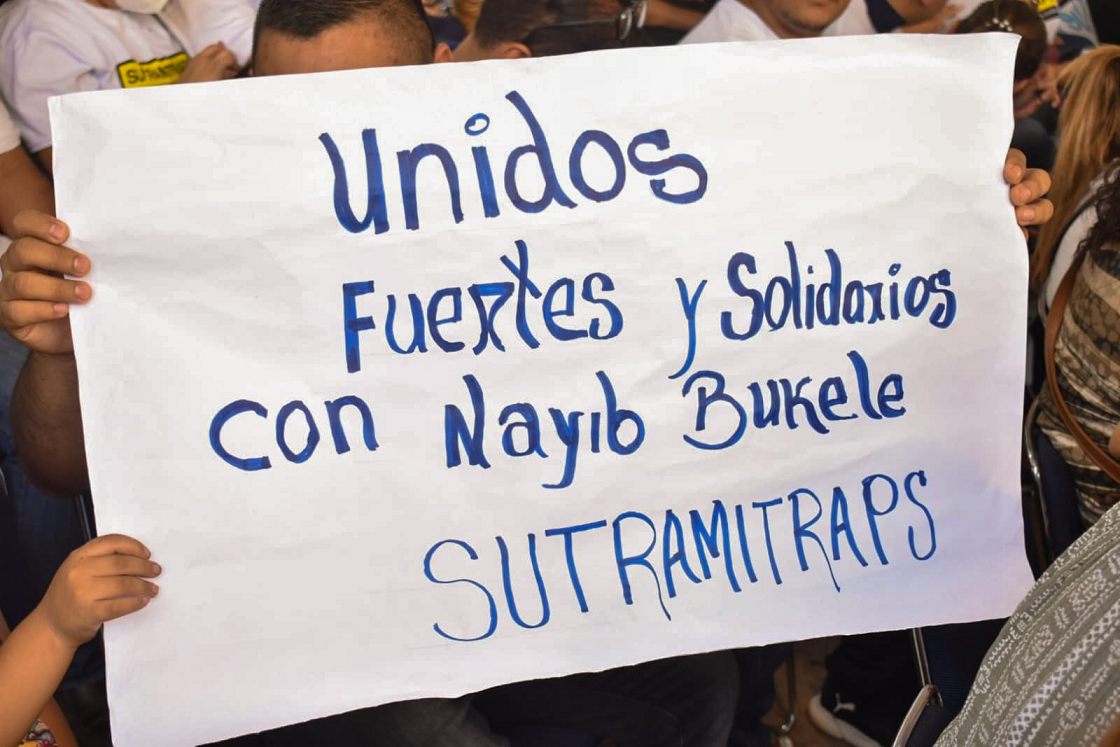 Unidos
Fuertes y Solidarios
con Nayib Bukele
SUTRAMITRAPS